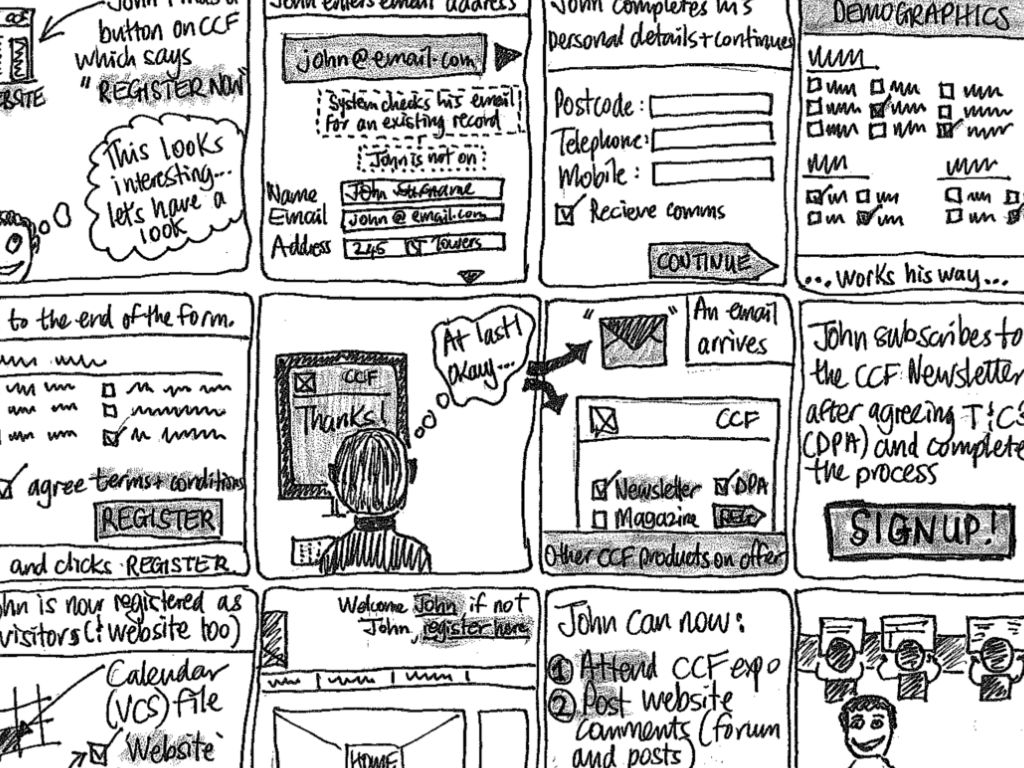 John finds a
button on CCF
which says
"REGISTER NOW"
This looks
interesting...
let's have a
look
John enters email address
john@email.com
System checks his email
for an existing record
John is not on
Name
John Surname
Email
john@email.com
Address
245
Towers
John completes his
personal details + continues
Postcode:
Telephone:
Mobile:
Recieve comms
CONTINUE
DEMOGRAPHICS
...works his way...
to the end of the form.
agree terms + conditions
REGISTER
and clicks REGISTER
CCF
Thanks!
At last!
okay...
An email
arrives
CCF
Newsletter
DPA
Magazine
REG
Other CCF products on offer
John subscribes to
the CCF Newsletter
after agreeing T&CS
(DPA) and complete
the process
SIGNUP!
hn is now registered as
visitors (& website too)
Calendar
(VCS) file
'Website'
Welcome John if not
John, register here
HOME
John can now:
1 Attend CCF expo
2 Post website
comments (forum
and posts)